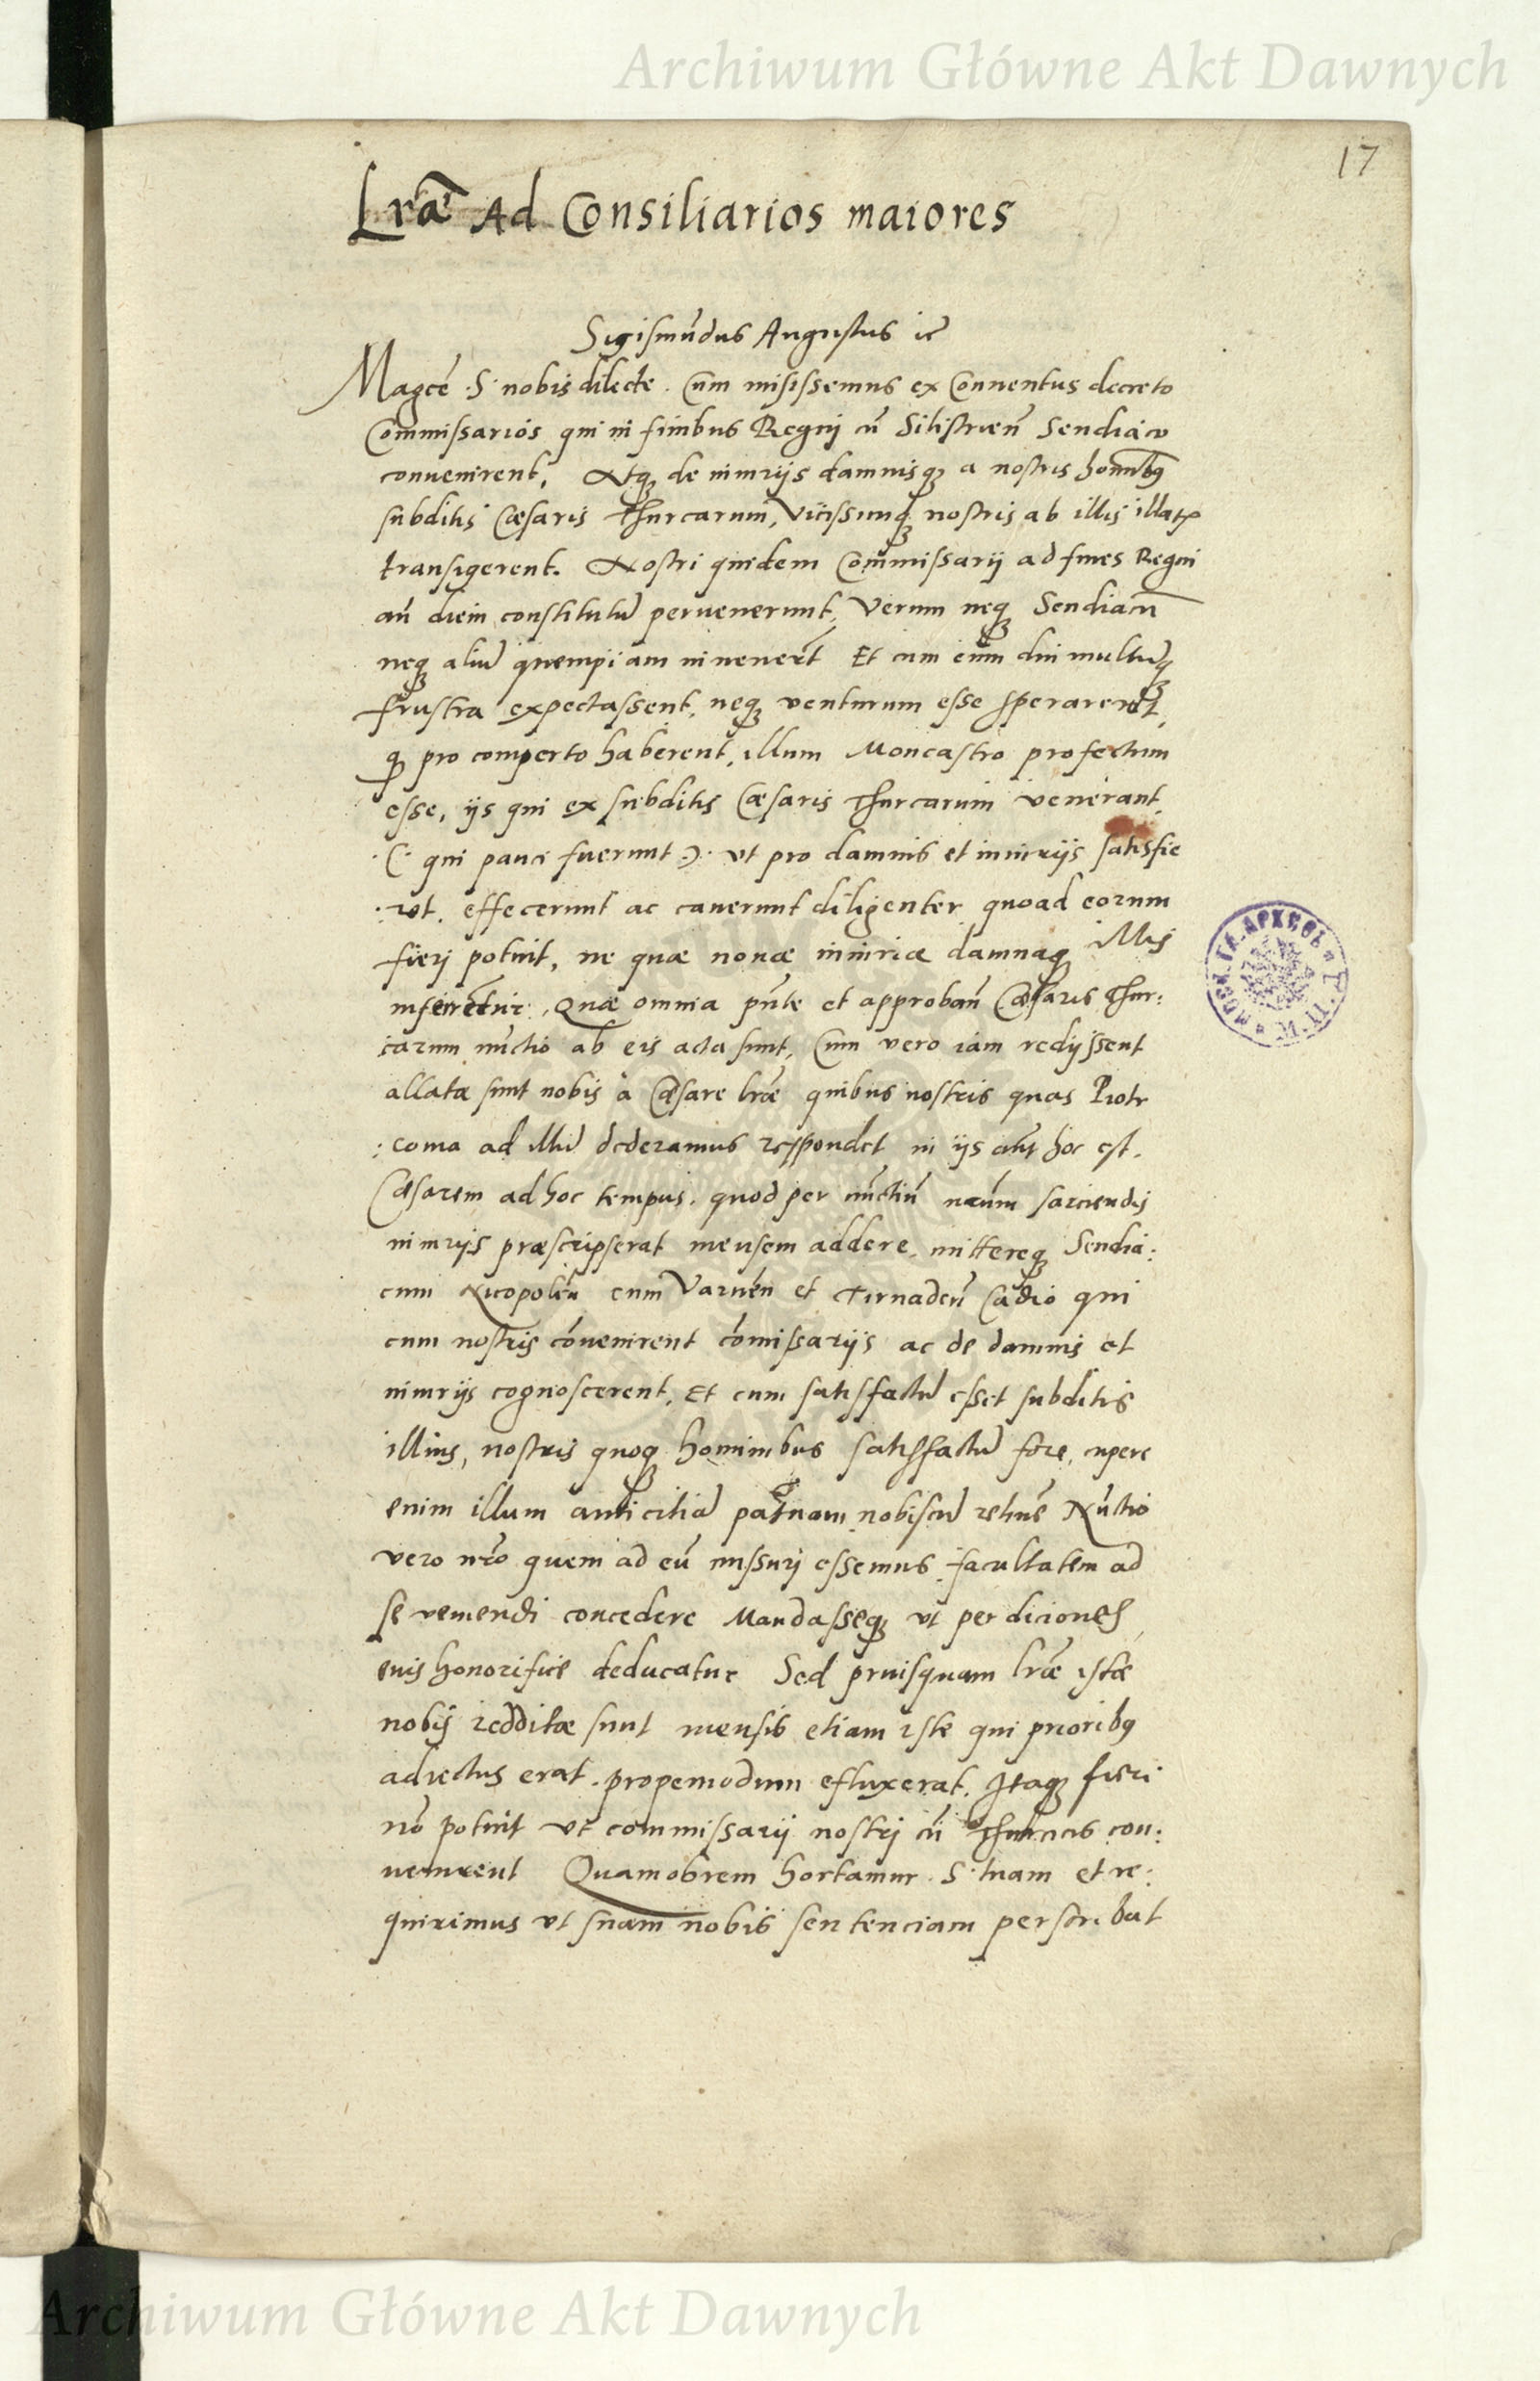 Archiwum Główne Akt Dawnych
17
Lrae Ad Consiliarios maiores
Sigismūdus Augustus ic̄
Magcē .S. nobis dilecte. Cum misissemus ex Conuentus decreto
Commissarios qui in finibus Regni cū Silistrien̄ Sendiaco
conuenirent, Atq de iniurijs damnisq a nostris hominibq
subditis Cæsaris Thurcarum, Vicissimq nostris ab illis illatis
transigerent. Nostri quidem Commissarij ad fines Regni
an̄ diem constitutū peruenerunt, Verum neq Sendiacū
neq aliū quempiam inuenerūt Et cum eum diu multumq
frustra expectassent, neq venturum esse sperarent,
q pro comperto haberent, illum Moncastro profectum
esse, ijs qui ex subditis Cæsaris Thurcarum venerant,
(: qui pauci fuerunt :) vt pro damnis et iniurijs satisfie
:ret, effecerunt ac cauerunt diligenter quoad eorum
fieri potuit, ne quæ nouæ iniuriæ damnaq illis
inferrētur, Quæ omnia pn̄te et approban̄ Cæsaris Thur:
carum nūctio ab eis acta sunt, Cum vero iam redijssent
allatæ sunt nobis à Cæsare lræ quibus nostris quas Piotr
:coma ad illū dederamus respondet in ijs aūt hoc est,
Cæsarem ad hoc tempus, quod per nūctiū nrūm sarciendis
iniurijs præscripserat mensem addere, mittereq Sendia:
cum Nicopolēn cum Varnēn et Tirnaden̄ Cadio qui
cum nostris conuenirent comissarijs ac de damnis et
iniurijs cognoscerent, Et cum satisfactū esset subditis
illius, nostris quoq hominibus satisfactū fore, cupere
enim illum amicitiā paternam nobiscū retinē Nūctio
vero nrō quem ad eū missuri essemus facultatem ad
se veniendi concedere Mandasseq vt per diciones
suis honorifice deducatur Sed priusquam lræ istæ
nobis redditæ sunt mensis etiam iste qui prioribq
adiectus erat, propemodum efluxerat, Itaq fieri
nō potuit vt commissarij nostri cū Thurcis con:
uenirent Quamobrem hortamur .S. tuam et re:
quirimus vt suam nobis sentenciam perscribat
Archiwum Główne Akt Dawnych